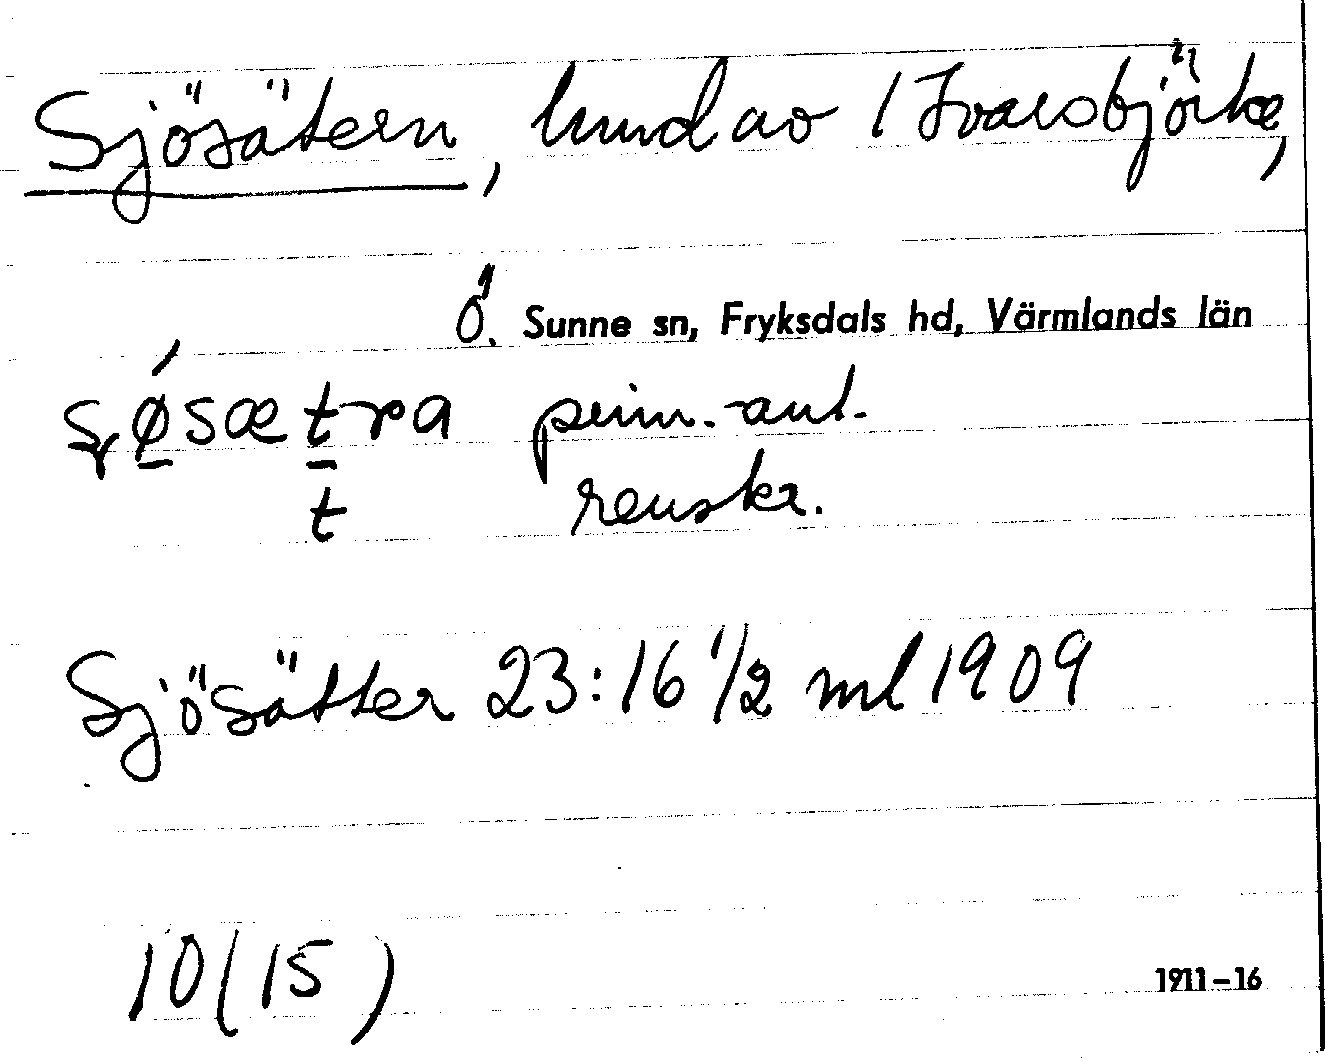 Sjösätern, hmd av 1 Ivarsbjörke,
Ö. Sunne sn, Fryksdals hd, Värmlands län
prim.-ant.
t renskr.
Sjösätter 23:16 1/2 ml 1909
10(15) 1911–16